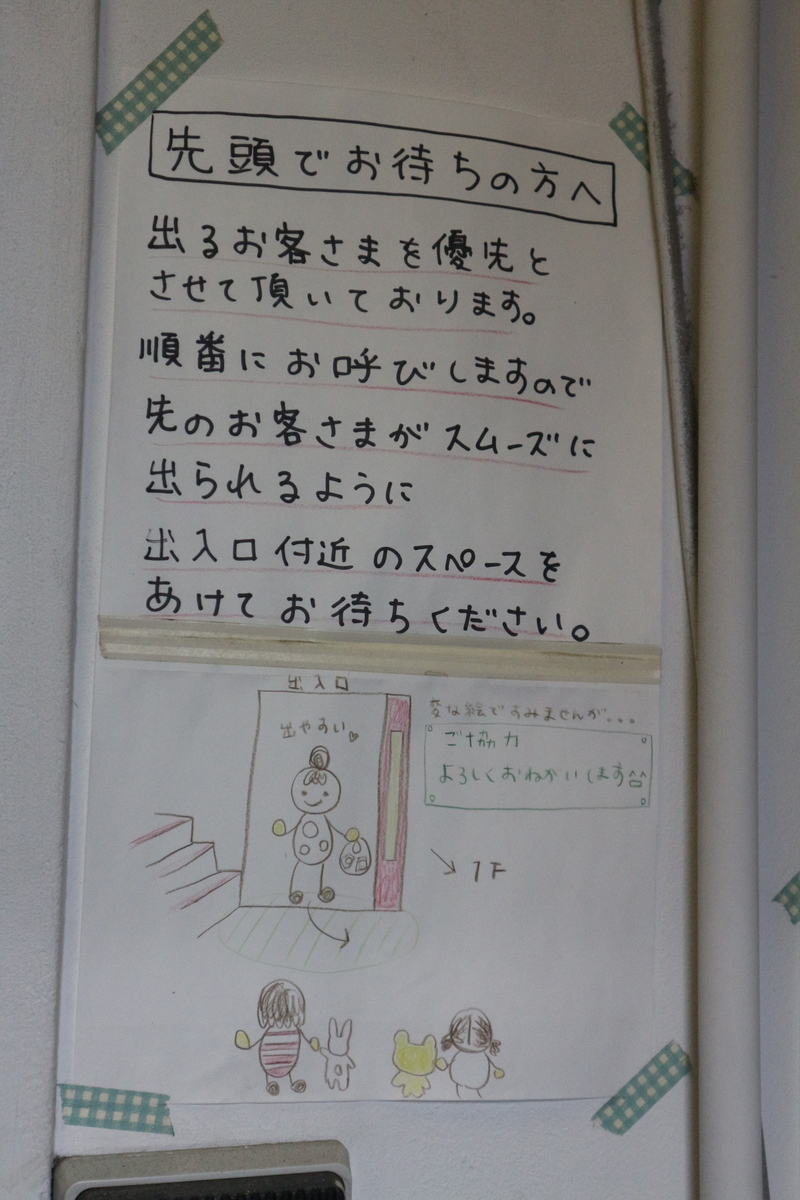 先頭でお待ちの方へ
出るお客さまを優先と
させて頂いております。
順番にお呼びしますので
先のお客さまがスムーズに
出られるように
出入口付近のスペースを
あけてお待ちください。
出入口
出やすい♡
変な絵ですみませんが...
ご協力
よろしくおねがいします^^
→1F